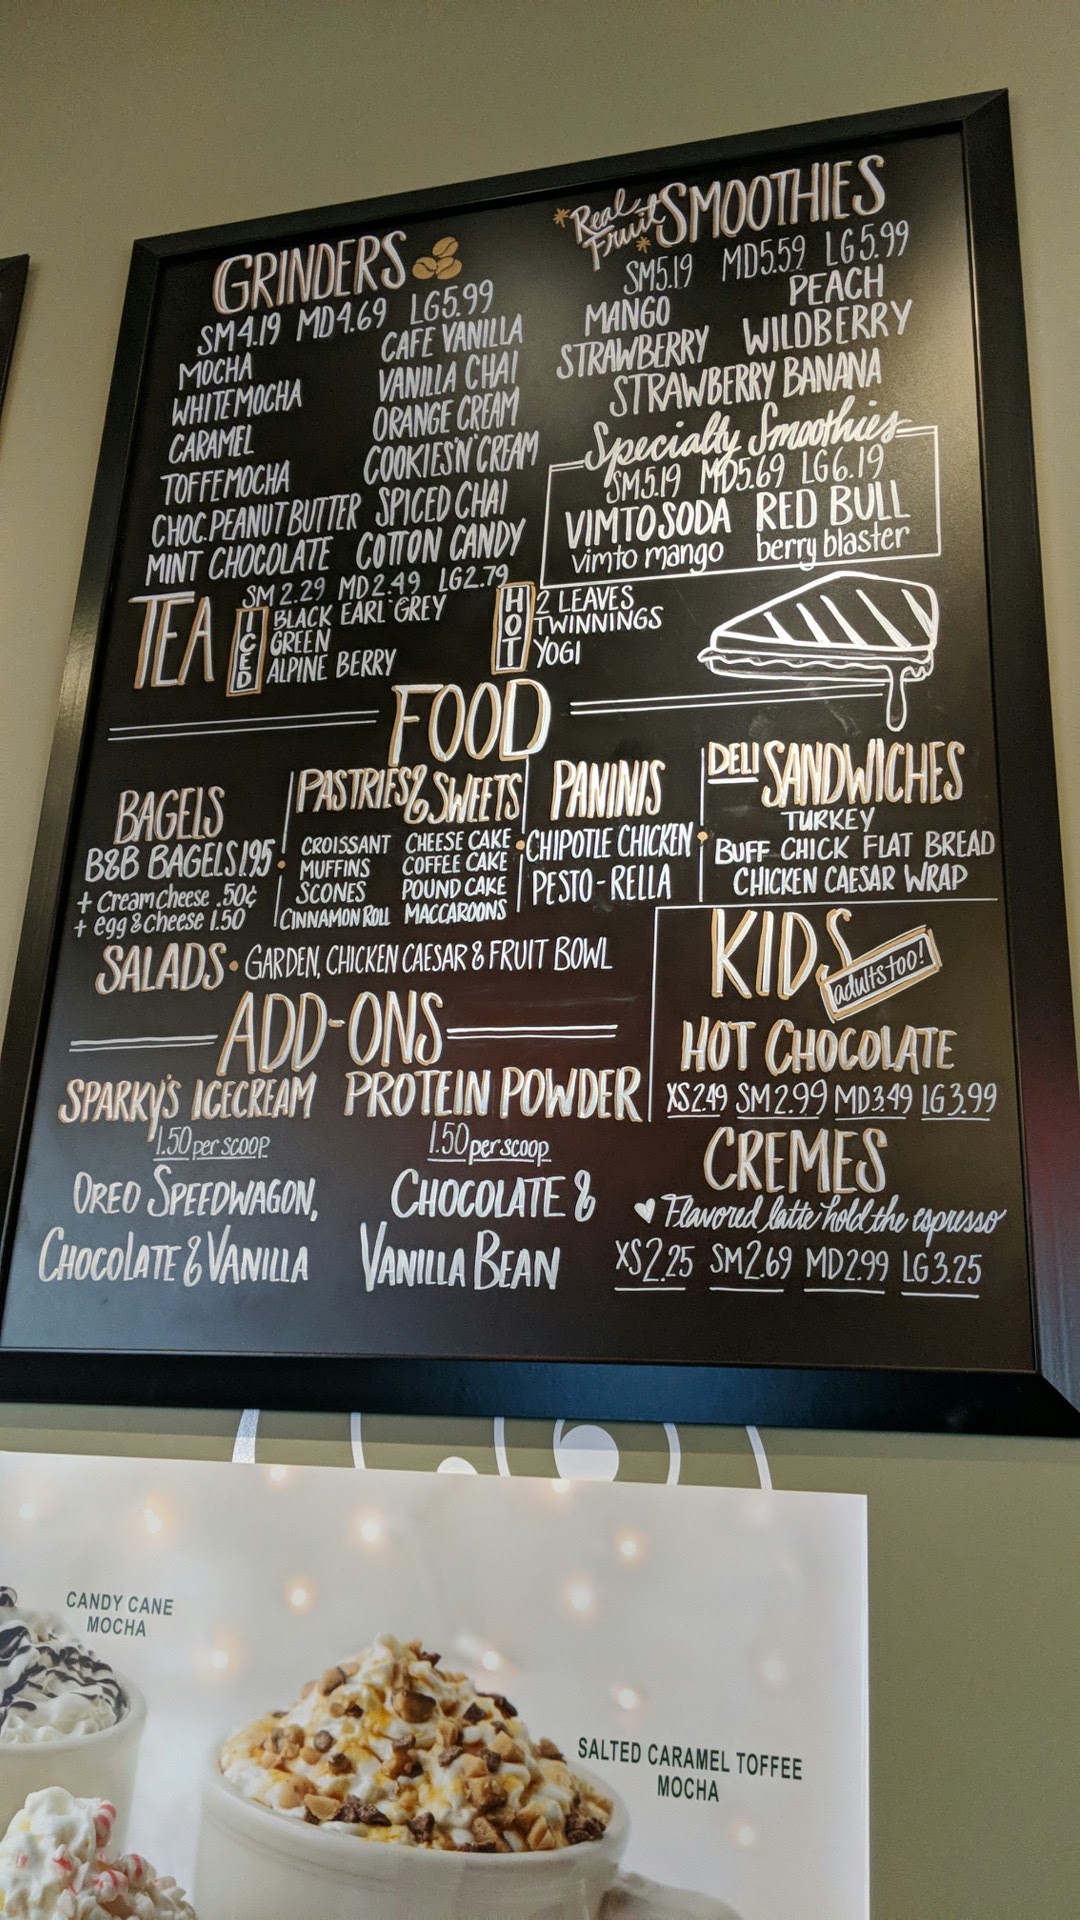 GRINDERS
SM 4.19 MD 4.69 LG 5.99
MOCHA
WHITE MOCHA
CARAMEL
TOFFEMOCHA
CHOC. PEANUT BUTTER
MINT CHOCOLATE
CAFE VANILLA
VANILLA CHAI
ORANGE CREAM
COOKIES 'N' CREAM
SPICED CHAI
COTTON CANDY
*Real Fruit* SMOOTHIES
SM 5.19 MD 5.59 LG 5.99
MANGO PEACH
STRAWBERRY WILDBERRY
STRAWBERRY BANANA
Specialty Smoothies
SM 5.19 MD 5.69 LG 6.19
VIMTO SODA RED BULL
vimto mango berry blaster
TEA
SM 2.29 MD 2.49 LG 2.79
ICED
BLACK EARL GREY
GREEN
ALPINE BERRY
HOT
2 LEAVES
TWINNINGS
YOGI
FOOD
BAGELS
B&B BAGELS 1.95
+ Cream cheese .50¢
+ egg & cheese 1.50
PASTRIES & SWEETS
CROISSANT
MUFFINS
SCONES
CINNAMON ROLL
CHEESE CAKE
COFFEE CAKE
POUND CAKE
MACCAROONS
PANINIS
CHIPOTLE CHICKEN
PESTO-RELLA
DELI SANDWICHES
TURKEY
BUFF CHICK FLAT BREAD
CHICKEN CAESAR WRAP
SALADS • GARDEN, CHICKEN CAESAR & FRUIT BOWL
ADD-ONS
SPARKY'S ICECREAM
1.50 per scoop
OREO SPEEDWAGON,
CHOCOLATE & VANILLA
PROTEIN POWDER
1.50 per scoop
CHOCOLATE &
VANILLA BEAN
KIDS
adults too!
HOT CHOCOLATE
XS 2.49 SM 2.99 MD 3.49 LG 3.99
CREMES
♥ Flavored latte hold the espresso
XS 2.25 SM 2.69 MD 2.99 LG 3.25
CANDY CANE
MOCHA
SALTED CARAMEL TOFFEE
MOCHA